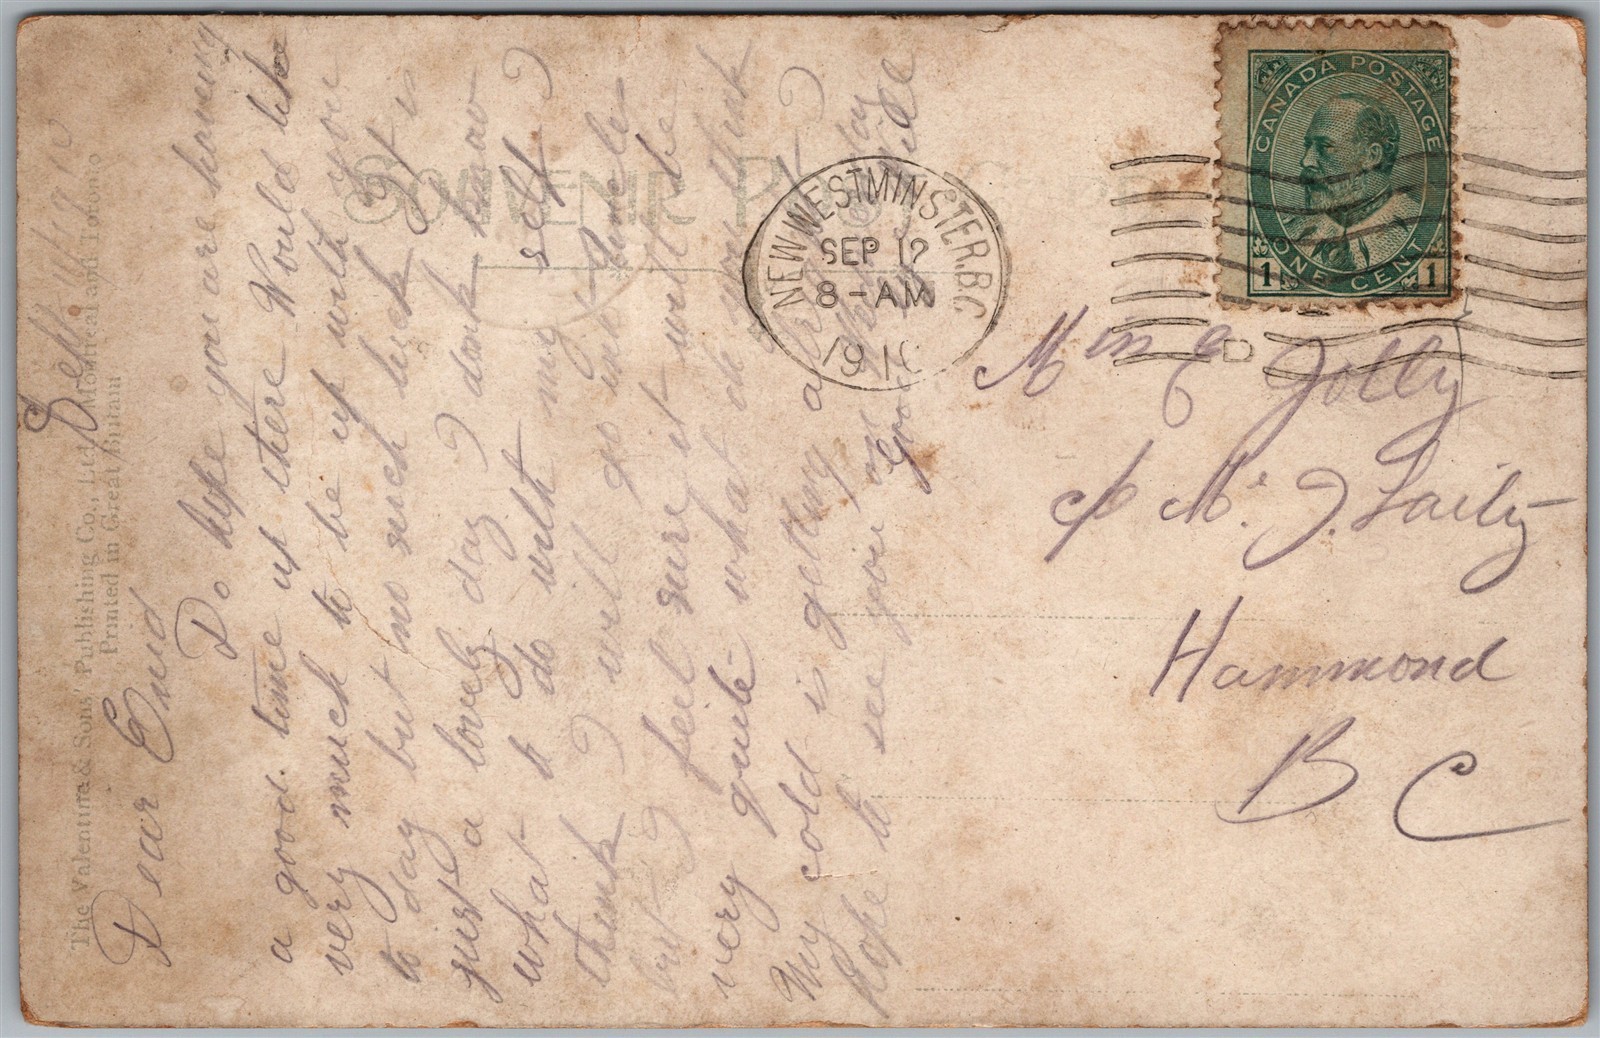 Sept 11th 1910
Dear Enid
Do hope you are having
a good time up there Would like
very much to be up with you
to day but no such luck It is
just a lovely day I dont know
what to do with my self
think I will go into
but I feel sure it will be
very quite what do you think
My cold is getting
Hope to see you on
SOUVENIR POST
The Valentine & Sons' Publishing Co., Ltd., Montreal and Toronto
Printed in Great Britain
NEW WESTMINSTER. B.C
SEP 12
8-AM
1910
CANADA POSTAGE
1 ONE CENT 1
D
E Jolly
c/o Mr J.
Hammond
B C